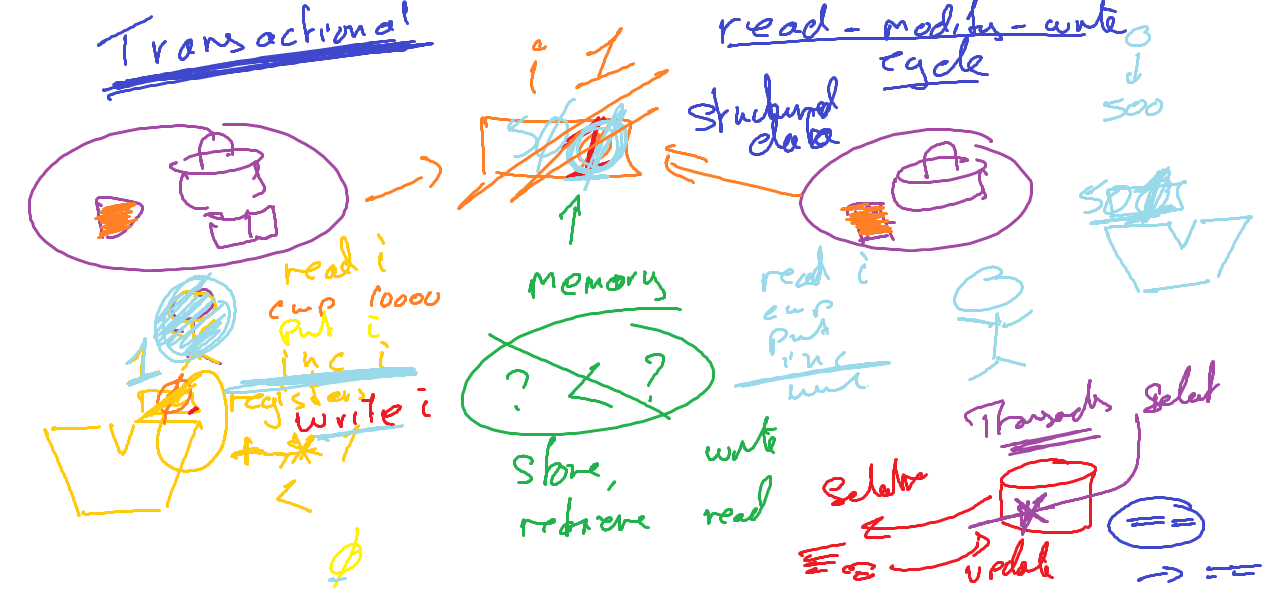 Transactional
read - modify - write
cycle
i 1
0
500
structured
data
50
1
500
read i
cmp 10000
put i
inc i
registers
write i
1
memory
? < ?
store,
retrieve
write
read
read i
cmp
put
inc
<
0
Select
update